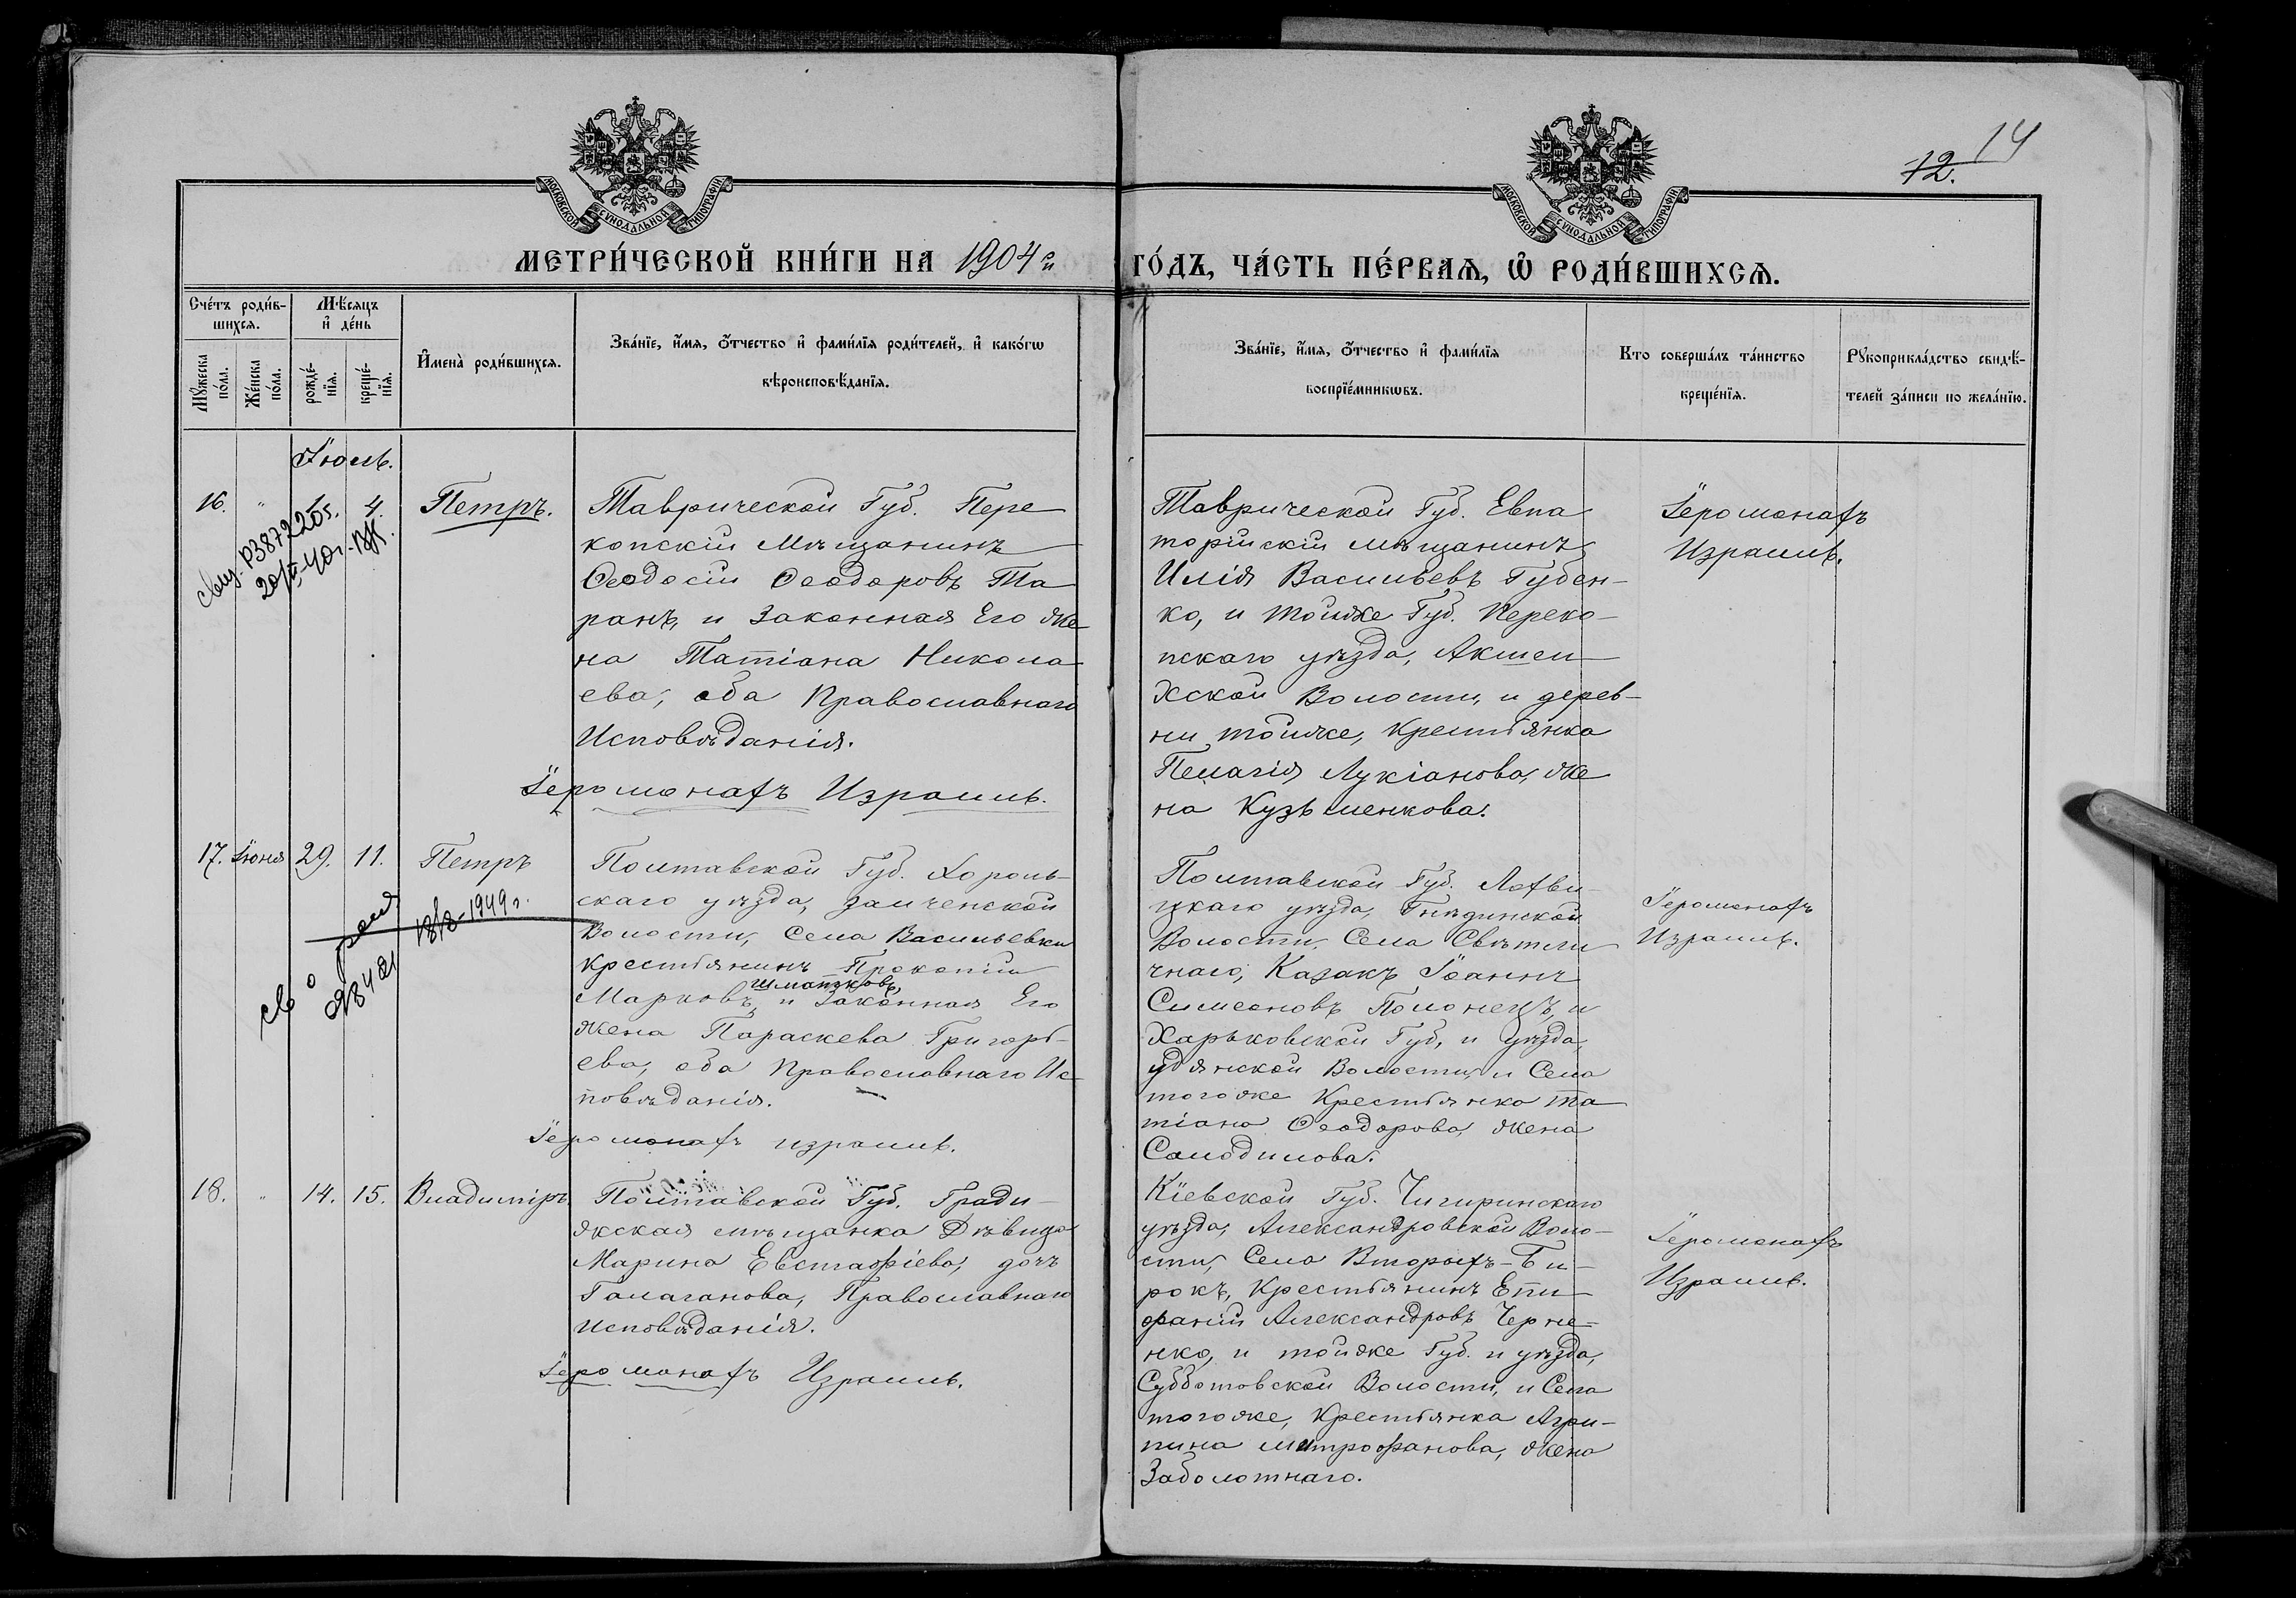 14
12.
МОСКОВСКОЙ СѴНОДАЛЬНОЙ ТИПОГРАФІИ
МОСКОВСКОЙ СѴНОДАЛЬНОЙ ТИПОГРАФІИ
МЕТРИ́ЧЕСКОЙ КНИ́ГИ НА 1904 й
ГО́ДЪ, ЧА́СТЬ ПЕ́РВАѦ, Ѡ҆ РОДИ́ВШИХСѦ.
Сче́тъ роди́в-
шихсѧ.
Мѣ́сѧцъ
и҆ де́нь
Мꙋ́жеска
по́ла.
Же́нска
по́ла.
рожде́-
нїѧ.
креще́-
нїѧ.
И҆мена̀ роди́вшихсѧ.
Зва́нїе, и҆́мѧ, о҆́тчество и҆ фами́лїѧ роди́телей, и҆ како́гѡ
вѣроисповѣ́данїѧ.
Зва́нїе, и҆́мѧ, о҆́тчество и҆ фами́лїѧ
воспрїе́мникѡвъ.
Кто соверша́лъ та́инство
креще́нїѧ.
Рꙋкоприкла́дство свидѣ́-
телей за́писи по жела́нїю.
Іюль.
16. " 1. 4. Петръ.
Таврической Губ. Пере
копскій Мѣщанинъ
Ѳеодосій Ѳеодоровъ Та
ранъ, и Законная Его же
на Татіана Никола
ева, оба Православнаго
Исповѣданія.
Іеромонахъ Израиль.
Таврической Губ. Евпа
торійскій мѣщанинъ
Илія Васильевъ Губен-
ко, и тойже Губ. Переко-
пскаго уѣзда, Акшеи-
хской Волости, и дерев-
ни тойже, Крестьянка
Пелагія Лукіанова, же
на Кузьменкова.
Іеромонахъ
Израиль.
свид. РЗ 87220
17. Іюня 29. 11. Петръ
Полтавской Губ. Хороль-
скаго уѣзда, Заиченской
Волости, Села Васильевки
крестьянинъ Прокопій
Шматковъ,
Марковъ и Законная Его
жена Параскева Григорь-
ева, оба Православнаго Ис-
повѣданія.
Іеромонахъ Израиль.
Полтавской Губ. Лохви-
цкаго уѣзда, Гнѣдинской
Волости, Села Свѣтли
чнаго, Казакъ Іоаннъ
Симеоновъ Полонецъ, и
Харьковской Губ, и уѣзда,
Удянской Волости, и Села
тогоже Крестьянка Та
тіана Ѳеодорова, жена
Самодилова.
Іеромонахъ
Израиль.
1949 г.
18. " 14. 15. Владиміръ
Полтавской Губ. Гради-
жская мѣщанка Дѣвица
Марина Евстафіева, дочь
Галаганова, Православнаго
исповѣданія.
Іеромонахъ Израиль.
Кіевской Губ. Чигиринскаго
уѣзда, Александровской Воло-
сти, Села Вторыхъ-Би-
рокъ, Крестьянинъ Епи
фаній Александровъ Черне-
нко, и тойже Губ. и уѣзда,
Субботовской Волости, и Села
тогоже, Крестьянка Агри-
пина Митрофанова, жена
Заболотнаго.
Іеромонахъ
Израиль.